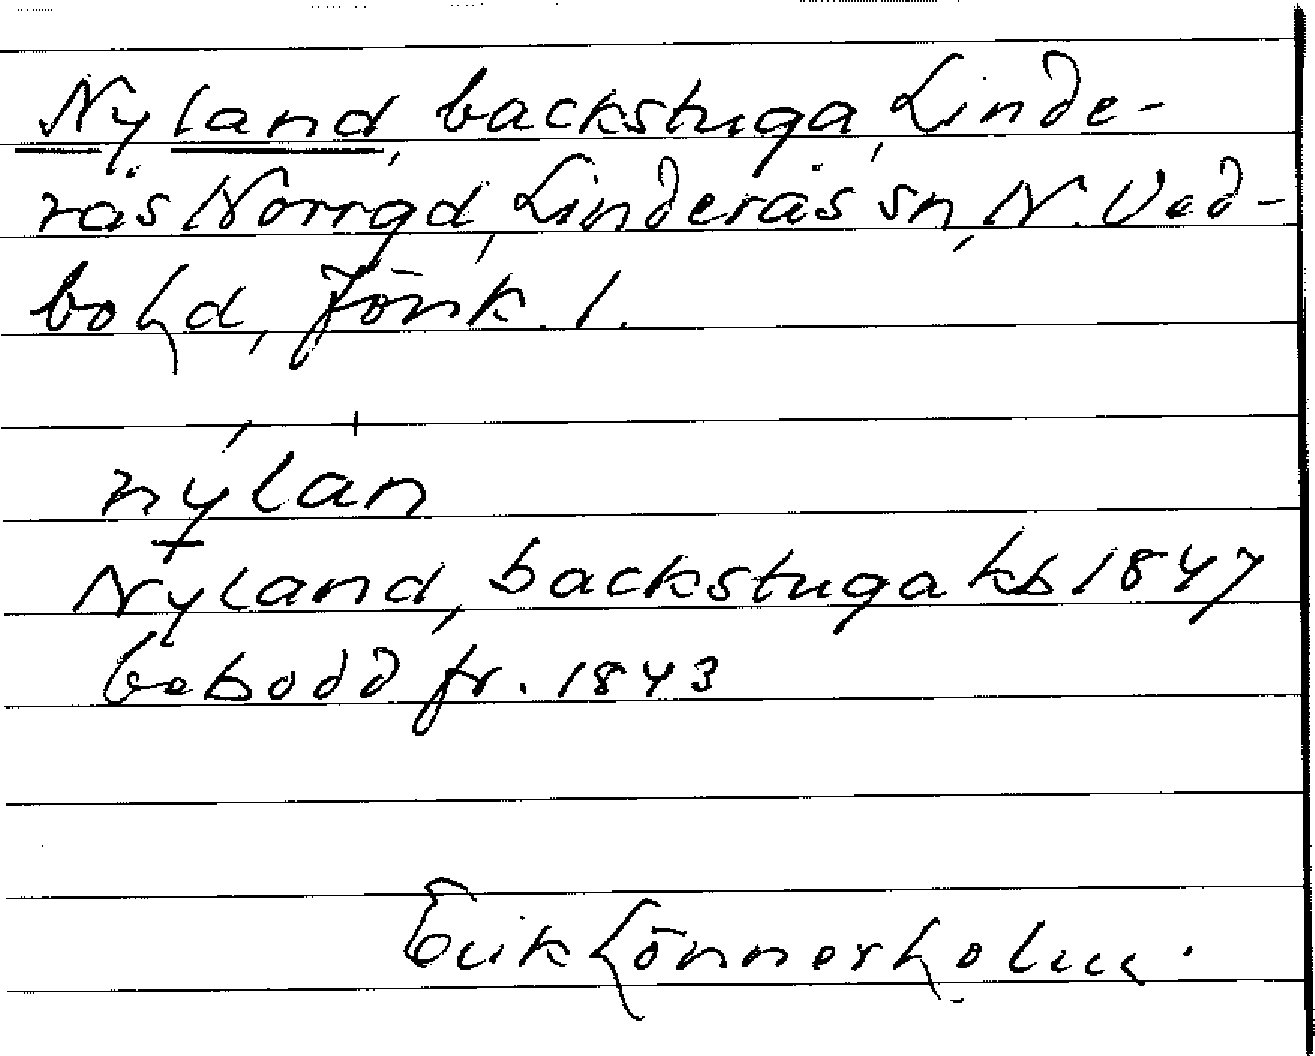 Nyland, backstuga, Linde-
rås Norrgd, Linderås sn, N. Ved-
bo hd, Jönk. l.
nýlàn
Nyland, backstuga kb 1847
bebodd fr. 1843
Erik Lönnerholm.